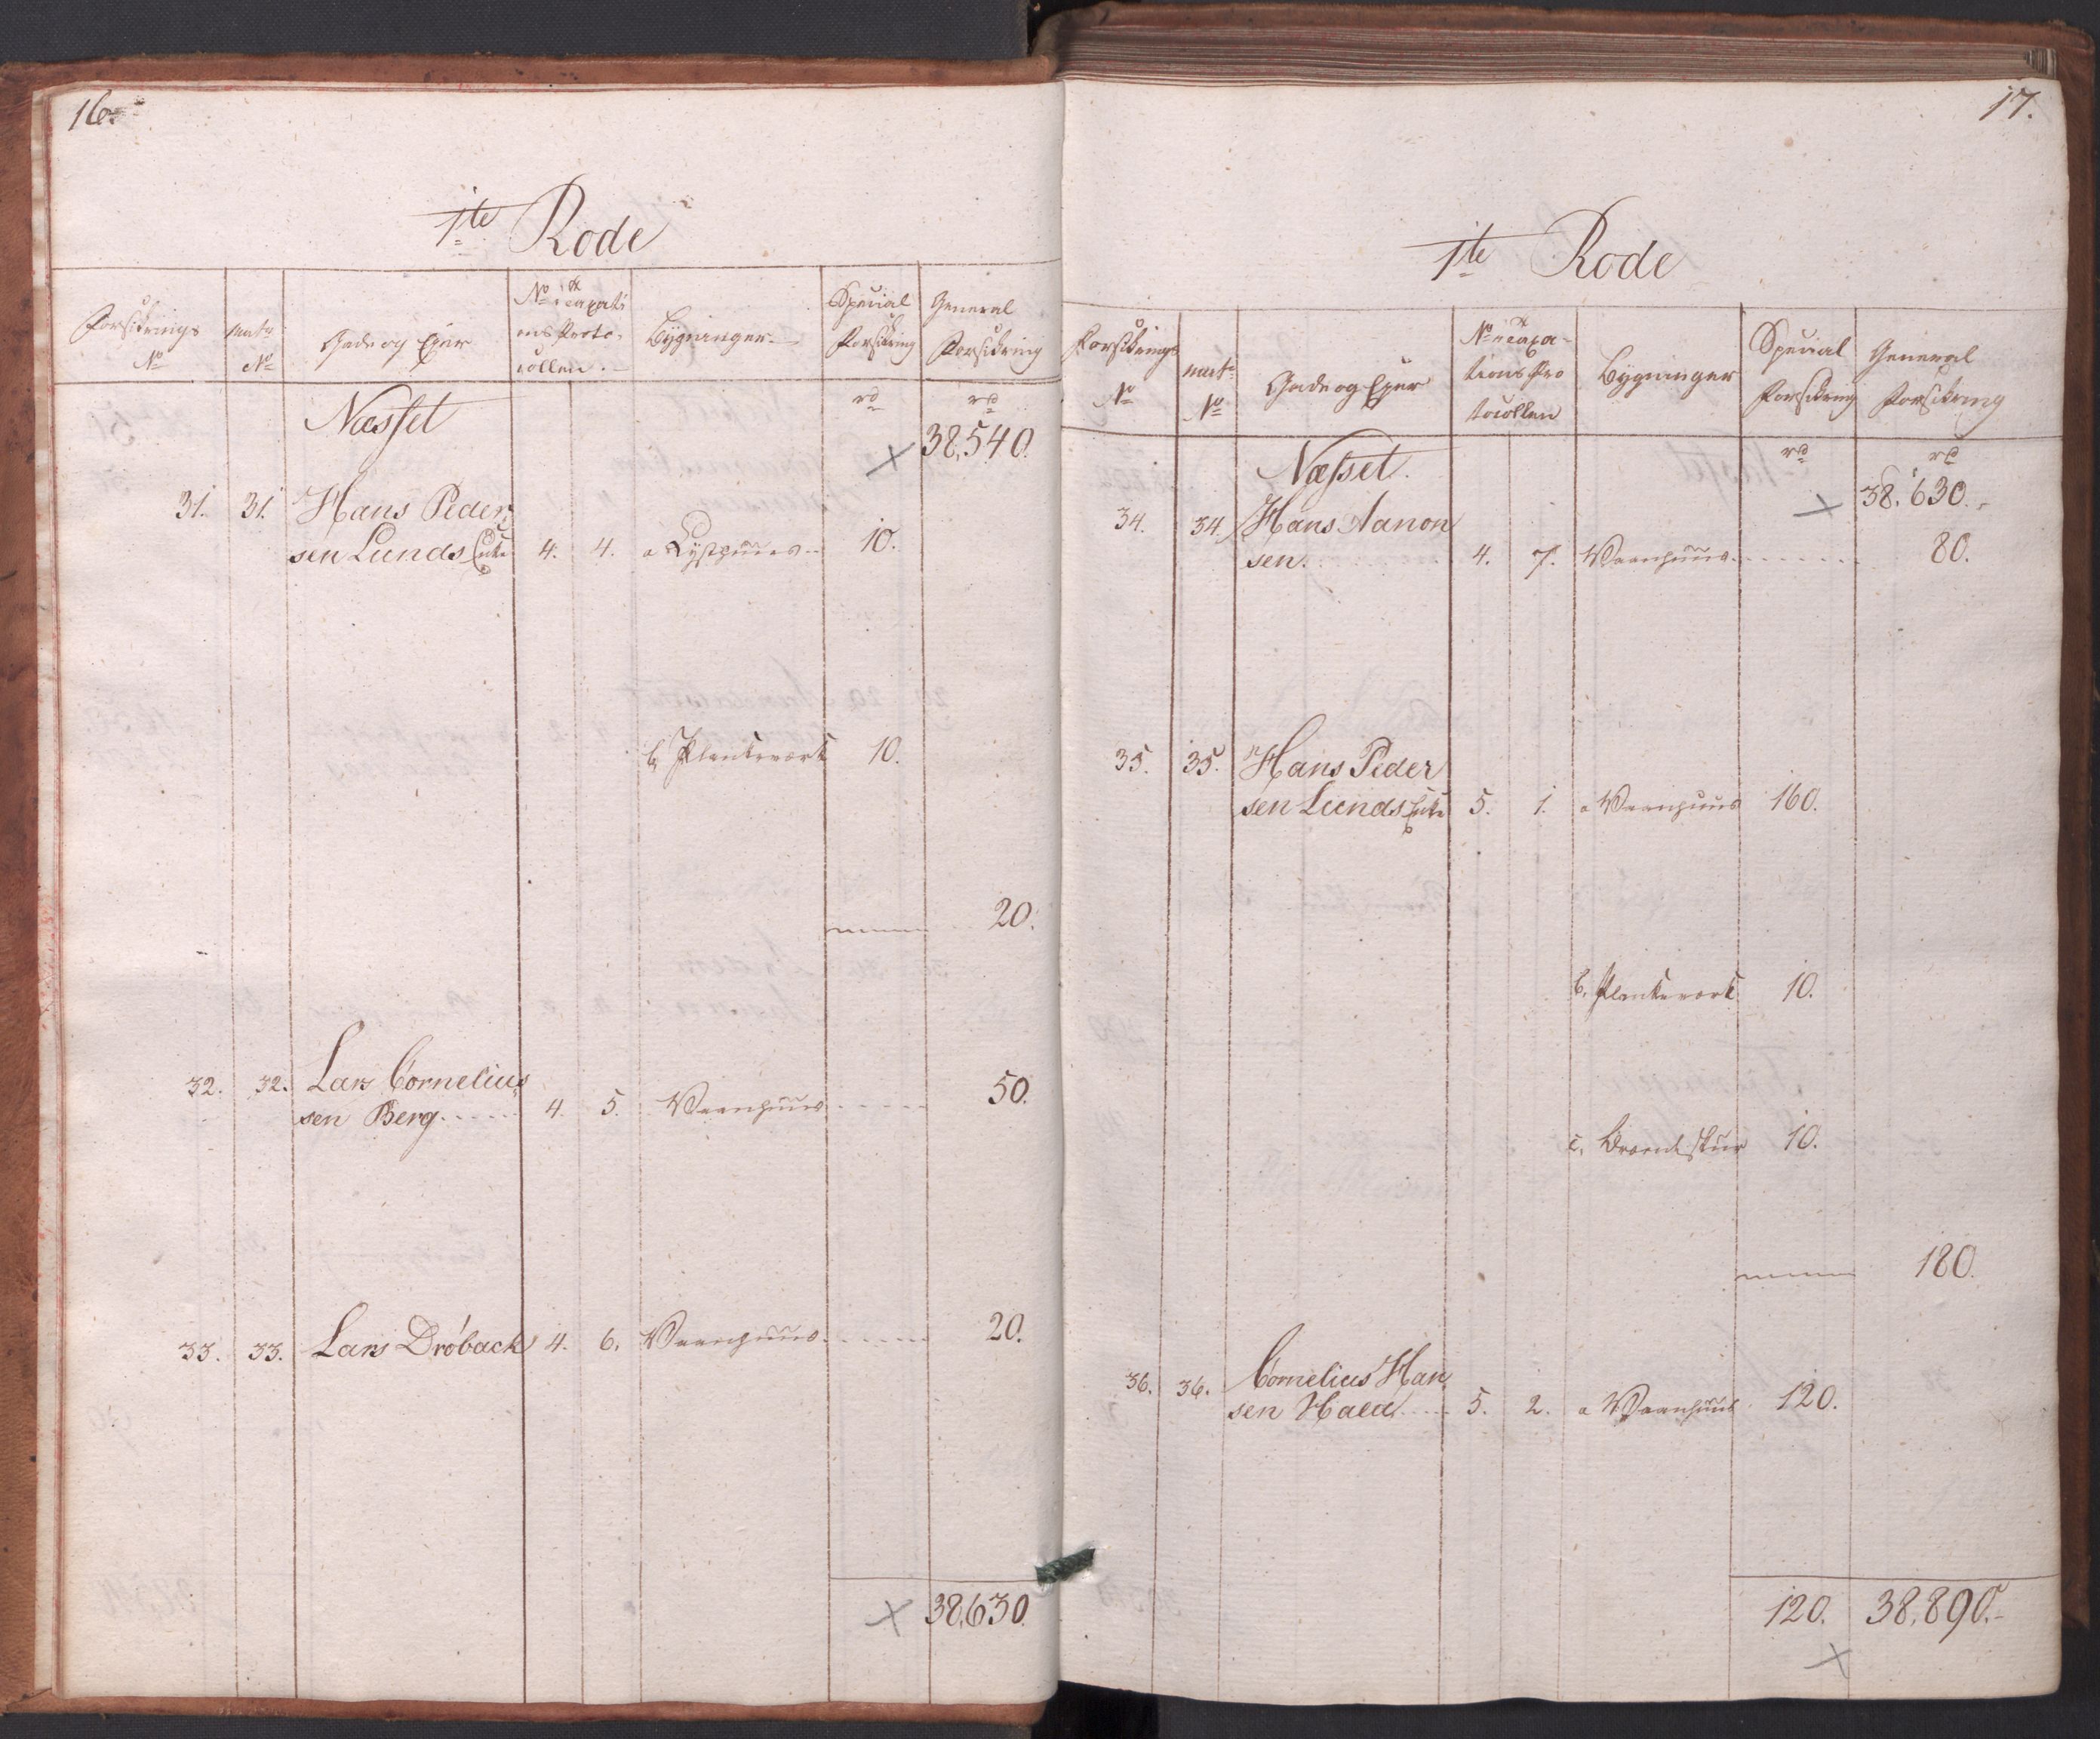 16.
1te Rode
Forsikrings No
Matr. No
Gade og Ejer
No i Taxati
ons Proto-
collen.
Bygninger
Special Forsikring
General Forsikring
Næsset
rd
rd
38,540.
31. 31. Hans Peder
sen Lunds Enke 4. 4. a Lysthuus 10.
b, Plankeværk 10.
20.
32. 32. Lars Cornelius
sen Berg 4. 5. Vaanhuus 50.
33. 33. Lars Dröback 4. 6. Vaanhuus 20.
38,630.
17.
1te Rode
Forsikrings No
Matr. No
Gade og Ejer
No i Taxa-
tions Pro
tocollen
Bygninger
Special Forsikring
General Forsikring
Næsset.
rd
rd
38,630.
34. 34. Hans Aanon
sen. 4. 7. Vaanhuus 80.
35. 35. Hans Peder
sen Lunds Enke 5. 1. a Vaanhuus 160.
b. Plankeværk 10.
c, Brændeskuur 10.
180.
36. 36. Cornelius Han
sen 5. 2. a Vaanhuus 120.
120. 38,890.